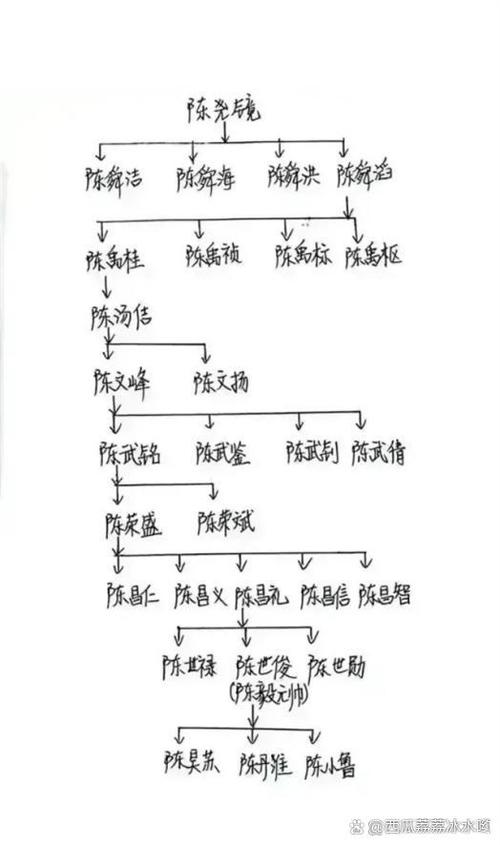 陈尧镜
陈舜洁 陈舜海 陈舜洪 陈舜滔
陈禹桂 陈禹祯 陈禹标 陈禹枢
陈汤佶
陈文峰 陈文扬
陈武铭 陈武鉴 陈武钊 陈武倩
陈荣盛 陈荣斌
陈昌仁 陈昌义 陈昌礼 陈昌信 陈昌智
陈世禄 陈世俊 陈世勋
(陈毅元帅)
陈昊苏 陈丹淮 陈小鲁
@西瓜荔荔冰水嗨